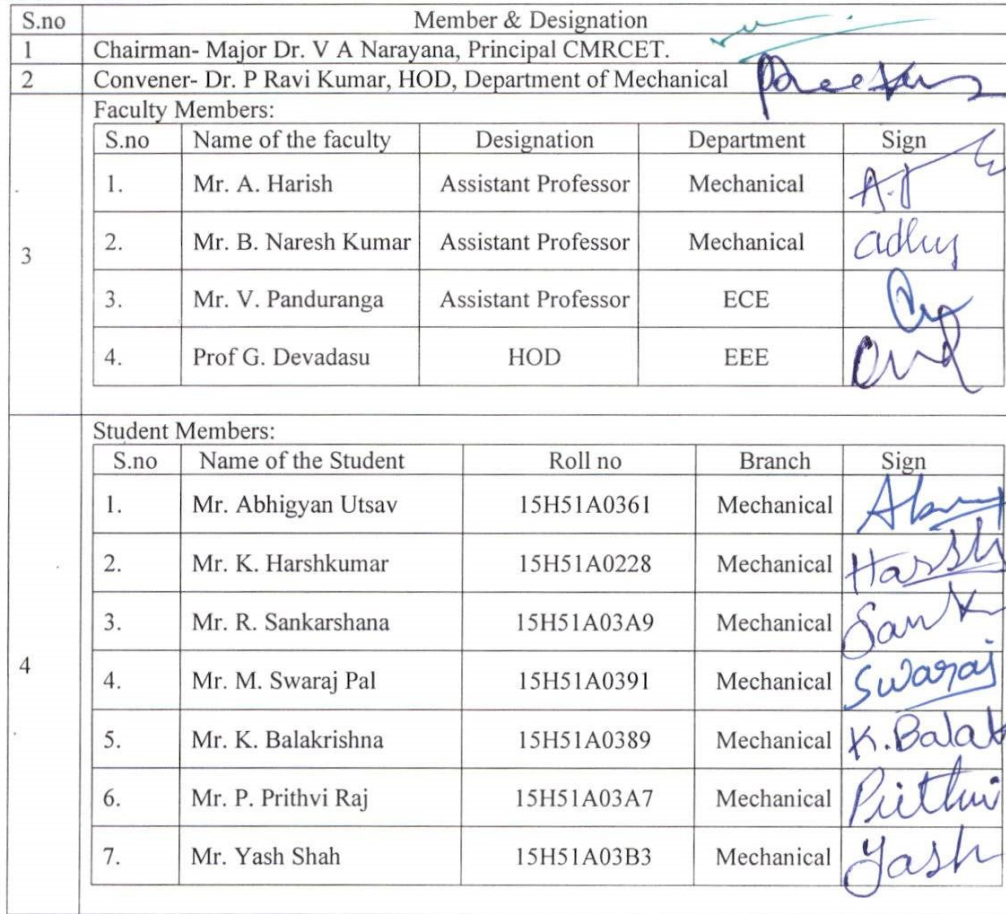 S.no Member & Designation
1 Chairman- Major Dr. V A Narayana, Principal CMRCET.
2 Convener- Dr. P Ravi Kumar, HOD, Department of Mechanical
3
Faculty Members:
S.no Name of the faculty Designation Department Sign
1. Mr. A. Harish Assistant Professor Mechanical
2. Mr. B. Naresh Kumar Assistant Professor Mechanical
3. Mr. V. Panduranga Assistant Professor ECE
4. Prof G. Devadasu HOD EEE
4
Student Members:
S.no Name of the Student Roll no Branch Sign
1. Mr. Abhigyan Utsav 15H51A0361 Mechanical
2. Mr. K. Harshkumar 15H51A0228 Mechanical Harsh
3. Mr. R. Sankarshana 15H51A03A9 Mechanical Sank
4. Mr. M. Swaraj Pal 15H51A0391 Mechanical Swaraj
5. Mr. K. Balakrishna 15H51A0389 Mechanical K.Balak
6. Mr. P. Prithvi Raj 15H51A03A7 Mechanical Prithvi
7. Mr. Yash Shah 15H51A03B3 Mechanical Yash